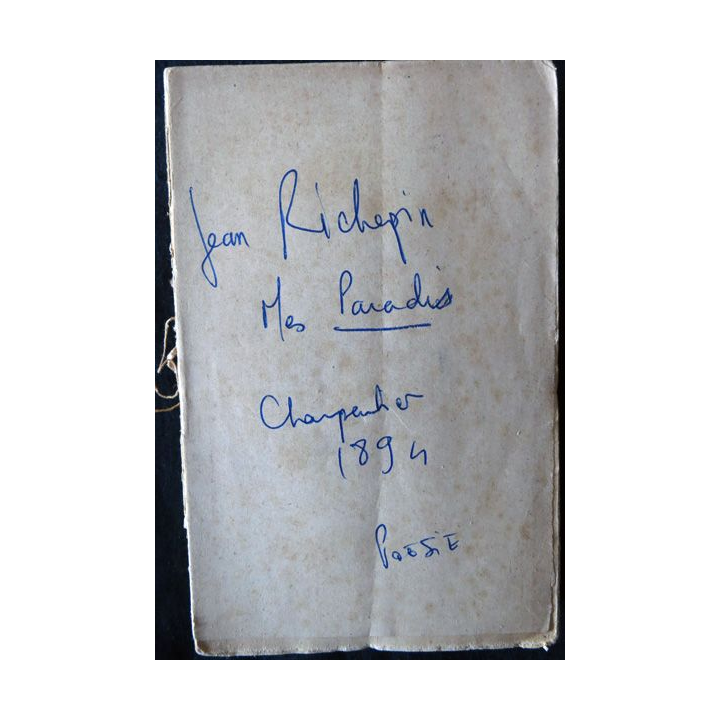 Jean Richepin
Mes Paradis
Charpentier
1894
POESIE